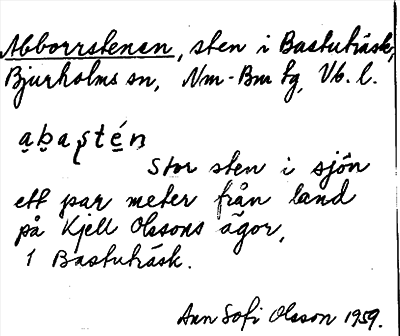 Abborrstenen, sten i Bastuträsk,
Bjurholms sn, Nm-Bm tg, Vb. l.
a̤b̤aʂtę́n
Stor sten i sjön
ett par meter från land
på Kjell Olssons ägor,
i Bastuträsk.
Ann Sofi Olsson 1959.